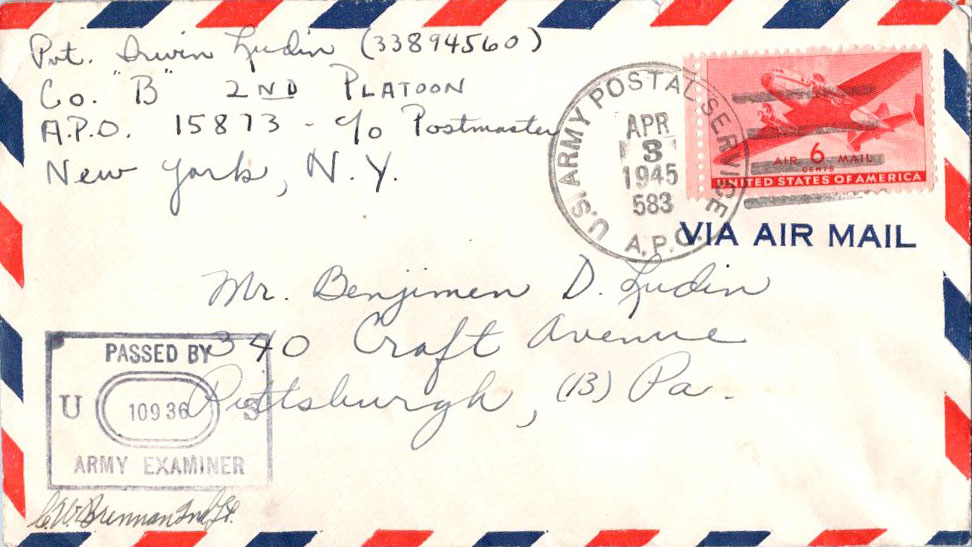 Pvt. Irwin Ludin (33894560)
Co. "B" 2ND PLATOON
A.P.O. 15873 - c/o Postmaster
New York, N.Y.
U.S. ARMY POSTAL SERVICE
APR
3
1945
583
A.P.O.
AIR 6 MAIL
CENTS
UNITED STATES OF AMERICA
VIA AIR MAIL
Mr. Benjimen D. Ludin
340 Craft Avenue
Pittsburgh, (13) Pa.
PASSED BY
U 10936 S
ARMY EXAMINER
C.W. Brennan 2nd Lt.